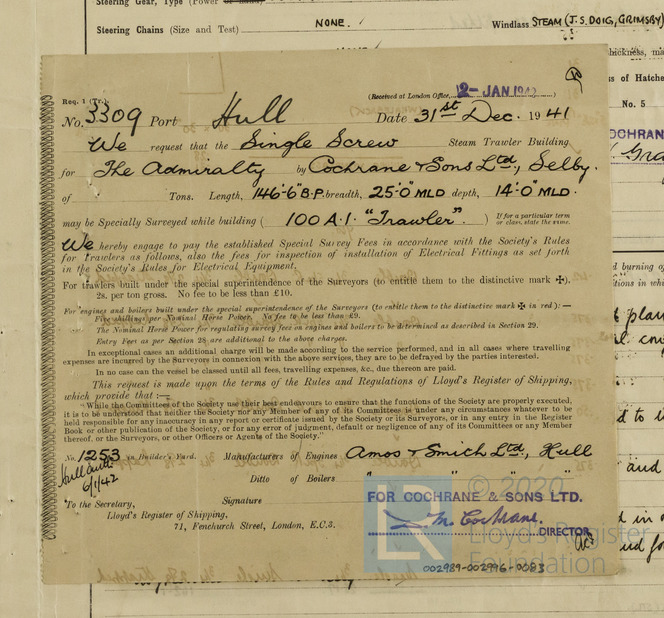 Steering Gear, Type (Power
Steering Chains (Size and Test) NONE. Windlass STEAM (J.S. DOIG, GRIMSBY)
thickness, ma
ss of Hatche
No. 5
OCHRANE
Req. 1 (Tr.)
(Received at London Office, 2- JAN 1942
No. 3309 Port Hull Date 31st Dec. 1941
We request that the Single Screw Steam Trawler Building
for The Admiralty by Cochrane & Sons Ltd, Selby.
of Tons. Length, 146'-6" B.P. breadth, 25'-0" MLD depth, 14'-0" MLD.
may be Specially Surveyed while building ( 100 A.1. "Trawler". ) If for a particular term or class, state the same.
We hereby engage to pay the established Special Survey Fees in accordance with the Society's Rules
for trawlers as follows, also the fees for inspection of installation of Electrical Fittings as set forth
in the Society's Rules for Electrical Equipment.
For trawlers built under the special superintendence of the Surveyors (to entitle them to the distinctive mark ✠).
2s. per ton gross. No fee to be less than £10.
For engines and boilers built under the special superintendence of the Surveyors (to entitle them to the distinctive mark ✠ in red):—
Five shillings per Nominal Horse Power. No fee to be less than £9.
The Nominal Horse Power for regulating survey fees on engines and boilers to be determined as described in Section 29.
Entry Fees as per Section 28 are additional to the above charges.
In exceptional cases an additional charge will be made according to the service performed, and in all cases where travelling
expenses are incurred by the Surveyors in connexion with the above services, they are to be defrayed by the parties interested.
In no case can the vessel be classed until all fees, travelling expenses, &c., due thereon are paid.
This request is made upon the terms of the Rules and Regulations of Lloyd's Register of Shipping,
which provide that :—
"While the Committees of the Society use their best endeavours to ensure that the functions of the Society are properly executed,
it is to be understood that neither the Society nor any Member of any of its Committees is under any circumstances whatever to be
held responsible for any inaccuracy in any report or certificate issued by the Society or its Surveyors, or in any entry in the Register
Book or other publication of the Society, or for any error of judgment, default or negligence of any of its Committees or any Member
thereof, or the Surveyors, or other Officers or Agents of the Society."
No. 1253 in Builder's Yard. Manufacturers of Engines Amos & Smith Ltd, Hull
Ditto of Boilers " " "
6/1/42
To the Secretary, Signature FOR COCHRANE & SONS LTD.
Lloyd's Register of Shipping, Cochrane.
71, Fenchurch Street, London, E.C.3. DIRECTOR
© 2020
LR Lloyd's Register
Foundation
002989-002996-0083